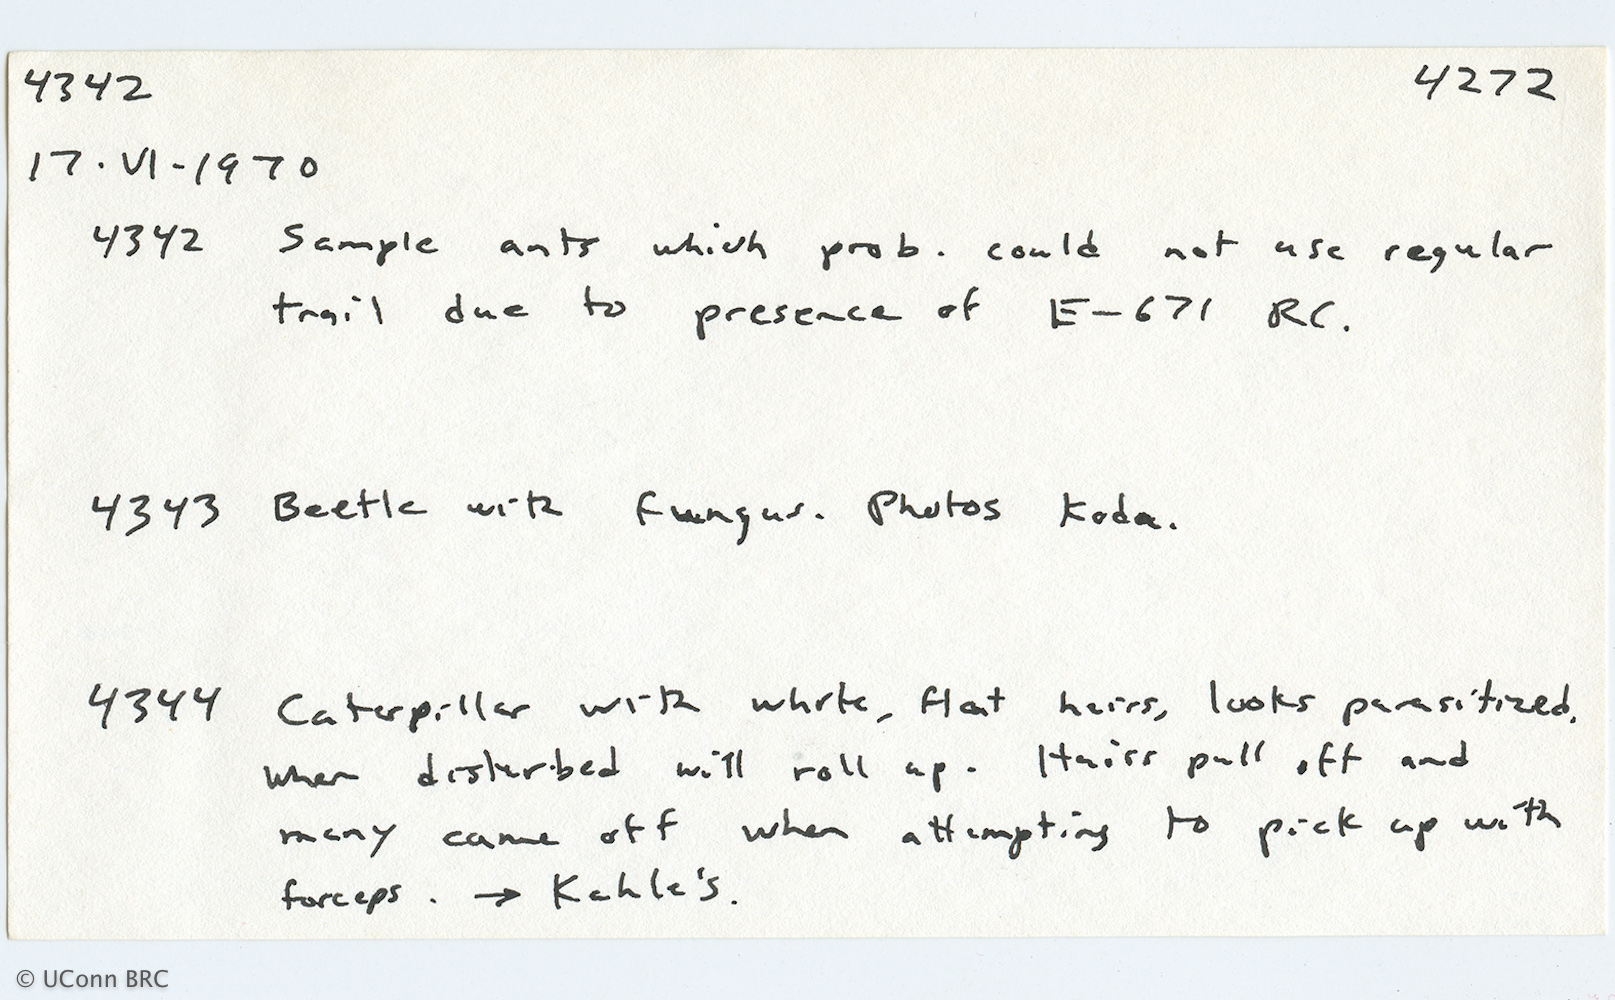 4342 4272
17·VI-1970
4342 Sample ants which prob. could not use regular
trail due to presence of E-671 RC.
4343 Beetle with fungus. Photos Koda.
4344 Caterpillar with white, flat hairs, looks parasitized,
when disturbed will roll up. Hairs pull off and
many came off when attempting to pick up with
forceps. → Kahle's.
© UConn BRC